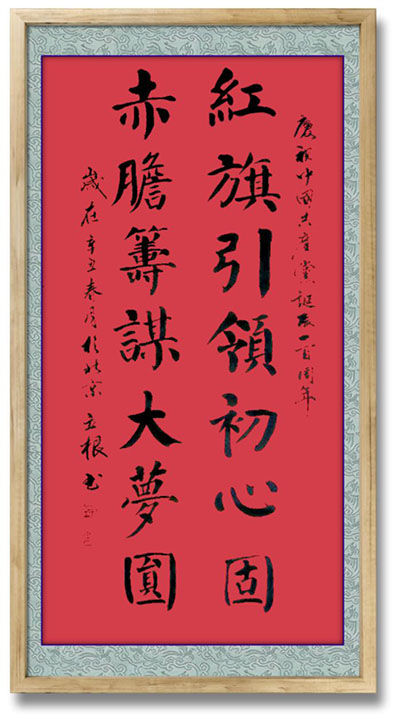 慶祝中國共產黨誕辰一百周年
紅旗引領初心固
赤膽籌謀大夢圓
歲在辛丑春月於北京 立根书